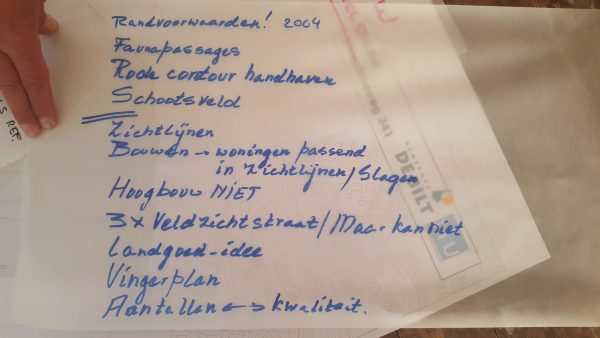 Randvoorwaarden! 2004
Faunapassages
Rode contour handhaven
Schootsveld
Zichtlijnen
Bouwen → woningen passend
in Zichtlijnen/Slagen
Hoogbouw NIET
3x Veldzichtstraat/Maar kan niet
Landgoed-idee
Vingerplan
Aantallen ↔ kwaliteit.
REF.
341
DE BILT